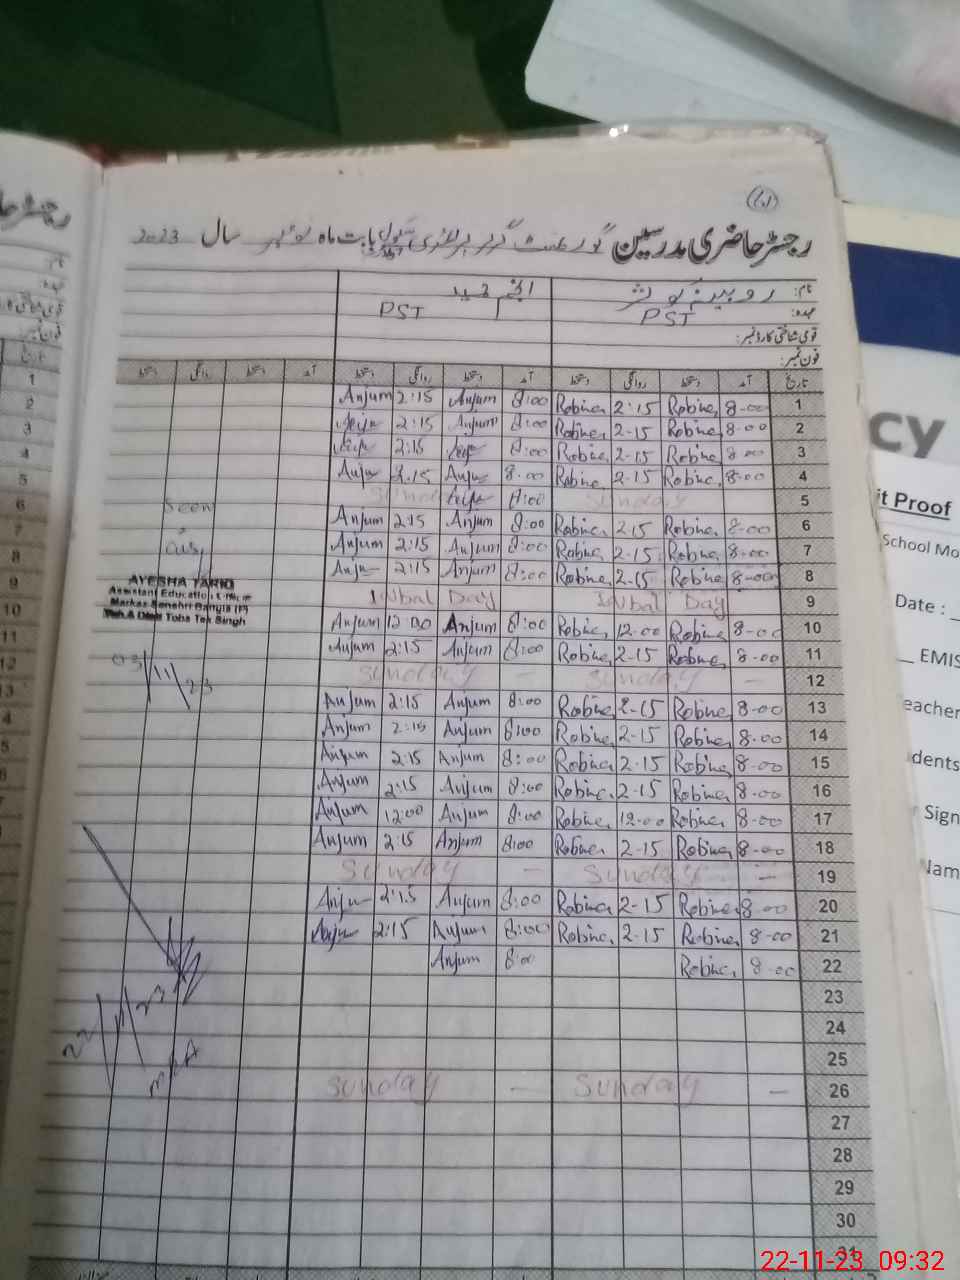 (61)
رجسٹر حاضری مدرسین گورنمنٹ گرلز پرائمری سکول بابت ماہ نومبر سال 2023
نام: روبینہ کوثر انجم حمید
عہدہ: PST PST
قومی شناختی کارڈ نمبر:
فون نمبر:
تاریخ آمد دستخط روانگی دستخط آمد دستخط روانگی دستخط آمد دستخط روانگی دستخط
1 8-00 Robina 2-15 Robina 8:00 Anjum 2:15 Anjum
2 8-00 Robina 2-15 Robina 8:00 Anjum 2:15
3 8-00 Robina 2-15 Robina 8:00 2:15
4 8-00 Robina 2-15 Robina 8:00 Anju 2:15 Anju
5 Sunday 8:00 Sunday
6 8-00 Robina 2-15 Robina 8:00 Anjum 2:15 Anjum
7 8-00 Robina 2-15 Robina 8:00 Anjum 2:15 Anjum
8 8-00 Robina 2-15 Robina 8:00 Anjum 2:15 Anju
9 Iqbal Day Iqbal Day
10 8-00 Robina 12-00 Robina 8:00 Anjum 12:00 Anjum
11 8-00 Robina 2-15 Robina 8:00 Anjum 2:15 Anjum
12 — Sunday — Sunday
13 8-00 Robina 2-15 Robina 8:00 Anjum 2:15 Anjum
14 8-00 Robina 2-15 Robina 8:00 Anjum 2:15 Anjum
15 8-00 Robina 2-15 Robina 8:00 Anjum 2:15 Anjum
16 8-00 Robina 2-15 Robina 8:00 Anjum 2:15 Anjum
17 8-00 Robina 12-00 Robina 8:00 Anjum 12:00 Anjum
18 8-00 Robina 2-15 Robina 8:00 Anjum 2:15 Anjum
19 — Sunday — Sunday
20 8-00 Robina 2-15 Robina 8:00 Anjum 2:15 Anju
21 8-00 Robina 2-15 Robina 8:00 Anjum 2:15 Anju
22 8-00 Robina 8:00 Anjum
23
24
25
26 — Sunday — Sunday
27
28
29
30
31
Seen
AYESHA TARIQ
Assistant Education Officer
Markaz Sanehri Bangla (F)
Teh & Distt Toba Tek Singh
03/11/23
22/11/23
MEA
رجسٹر
1
2
3
4
5
6
7
8
9
10
11
12
13
cy
it Proof
School Mo
Date :
EMIS
eacher
dents
Sign
Nam
22-11-23 09:32